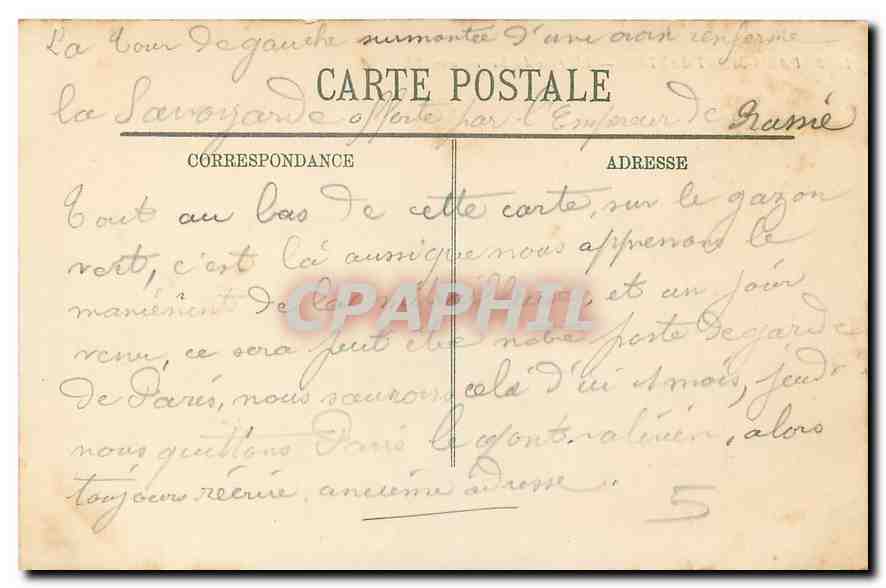 La Tour de gauche surmontée d'une croix renferme
CARTE POSTALE
la Savoyarde offerte par l'Empereur de Russie
CORRESPONDANCE
ADRESSE
Tout au bas de cette carte, sur le gazon
vert, c'est là aussi que nous apprenons le
maniément de la mitrailleuse, et un jour
venu, ce sera peut être notre poste de garde
de Paris, nous saurons celà d'ici 1 mois, jeudi
nous quittons Paris le Mont-valérien, alors
toujours réécrire, ancienne adresse.
5
CPAPHIL